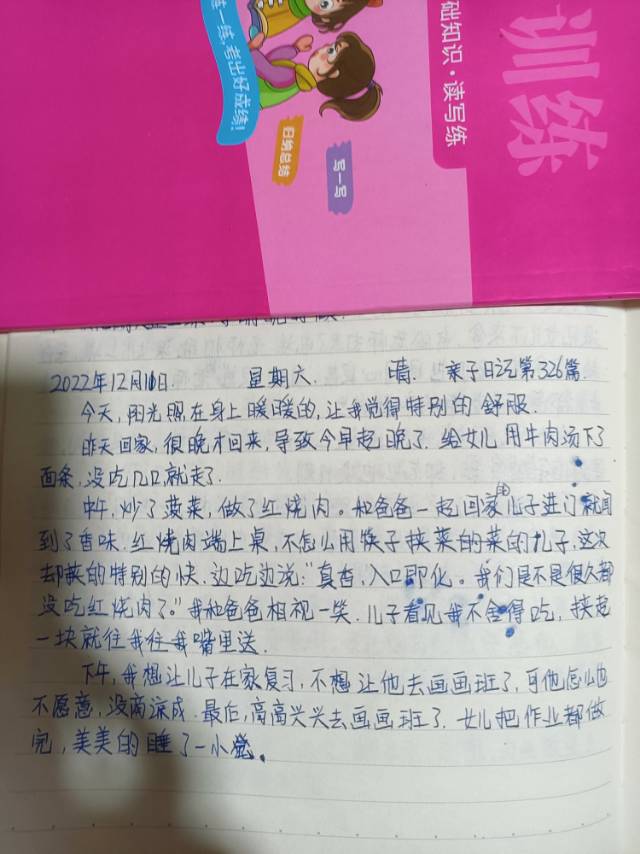 训练
础知识·读写练
练一练，考出好成绩！
归纳总结
写一写
2022年12月10日. 星期六. 晴. 亲子日记第326篇.
今天，阳光照在身上暖暖的，让我觉得特别的舒服.
昨天回家，很晚才回来，导致今早起晚了. 给女儿用牛肉汤下了
面条，没吃几口就走了.
中午，炒了菠菜，做了红烧肉。和爸爸一起回家的儿子进门就闻
到了香味. 红烧肉端上桌，不怎么用筷子挟菜的菜的儿子，这次
却挟的特别的快. 边吃边说："真香，入口即化。我们是不是很久都
没吃红烧肉了。"我和爸爸相视一笑. 儿子看见我不舍得吃，挟起
一块就往我往我嘴里送.
下午，我想让儿子在家复习，不想让他去画画班了，可他怎么也
不愿意，没商谅成. 最后，高高兴兴去画画班了. 女儿把作业都做
完，美美的睡了一小觉。